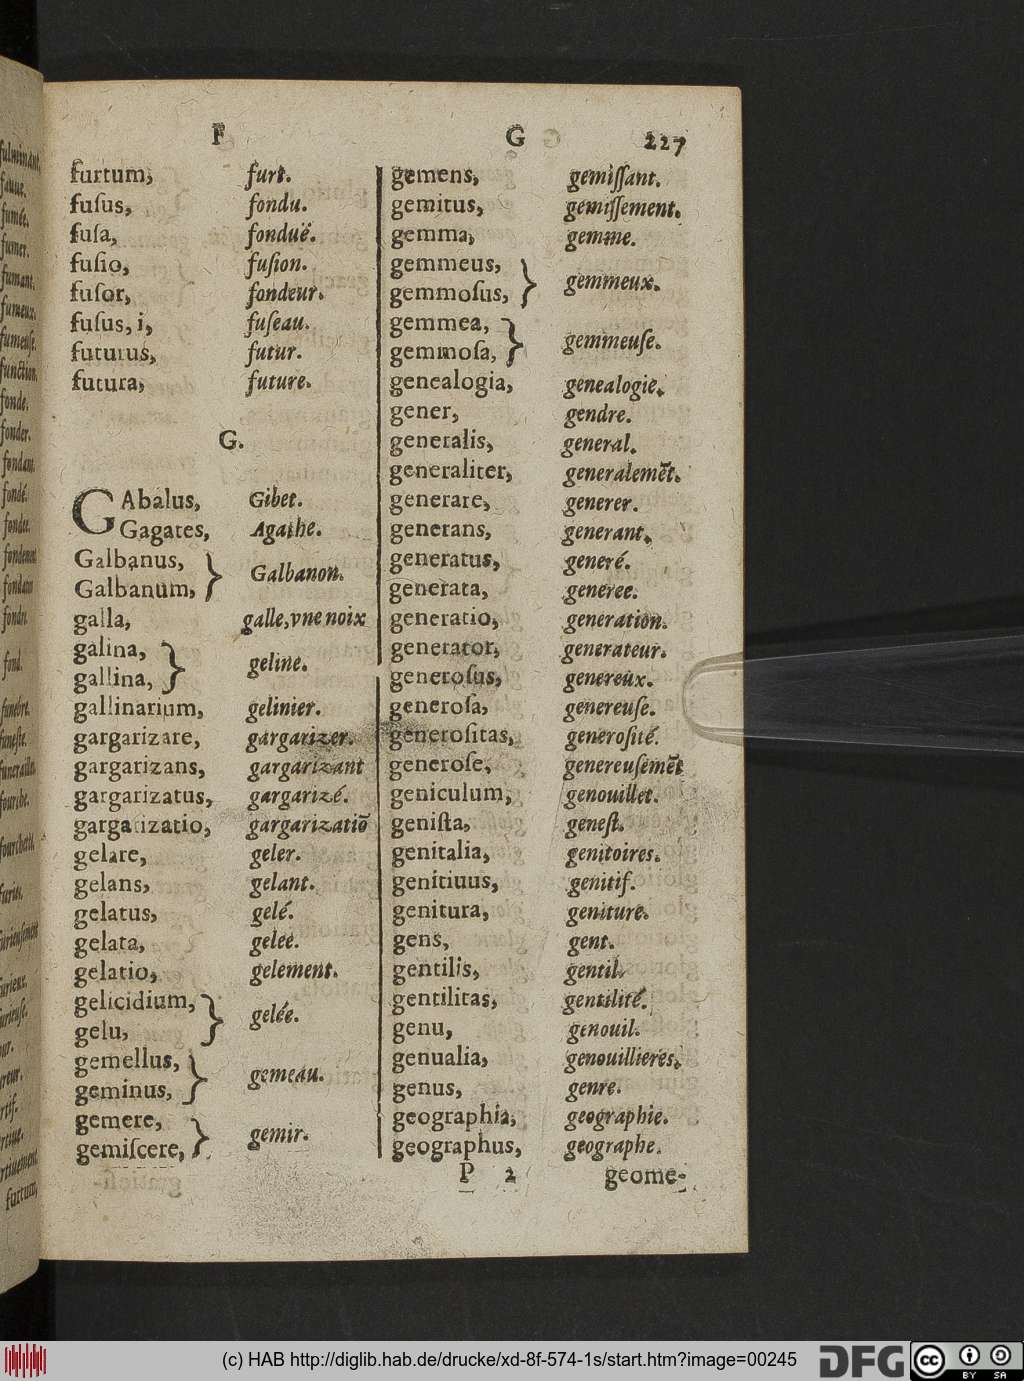 F G 227
furtum, furt.
fuſus, fondu.
fuſa, fonduë.
fuſio, fuſion.
fuſor, fondeur.
fuſus, i, fuſeau.
futurus, futur.
futura, future.
G.
GAbalus, Gibet.
Gagates, Agathe.
Galbanus,
Galbanum, } Galbanon.
galla, galle, vne noix
galina,
gallina, } geline.
gallinarium, gelinier.
gargarizare, gargarizer.
gargarizans, gargarizant
gargarizatus, gargarizé.
gargarizatio, gargarizatiō
gelare, geler.
gelans, gelant.
gelatus, gelé.
gelata, gelée.
gelatio, gelement.
gelicidium,
gelu, } gelée.
gemellus,
geminus, } gemeau.
gemere,
gemiſcere, } gemir.
gemens, gemiſſant.
gemitus, gemiſſement.
gemma, gemme.
gemmeus,
gemmoſus, } gemmeux.
gemmea,
gemmoſa, } gemmeuſe.
genealogia, genealogie.
gener, gendre.
generalis, general.
generaliter, generalemēt.
generare, generer.
generans, generant.
generatus, generé.
generata, generee.
generatio, generation.
generator, generateur.
generoſus, genereux.
generoſa, genereuſe.
generoſitas, generoſité.
generoſe, genereuſemēt
geniculum, genouillet.
geniſta, geneſt.
genitalia, genitoires.
genitiuus, genitif.
genitura, geniture.
gens, gent.
gentilis, gentil.
gentilitas, gentilité.
genu, genouil.
genualia, genouillieres.
genus, genre.
geographia, geographie.
geographus, geographe.
P 2 geome-
fumée.
fumer.
fumant.
fumeux.
fumeuſe.
function.
fonde.
fonder.
fondant.
fondé.
fondee.
fond.
furtum,
(c) HAB http://diglib.hab.de/drucke/xd-8f-574-1s/start.htm?image=00245
DFG
cc BY SA